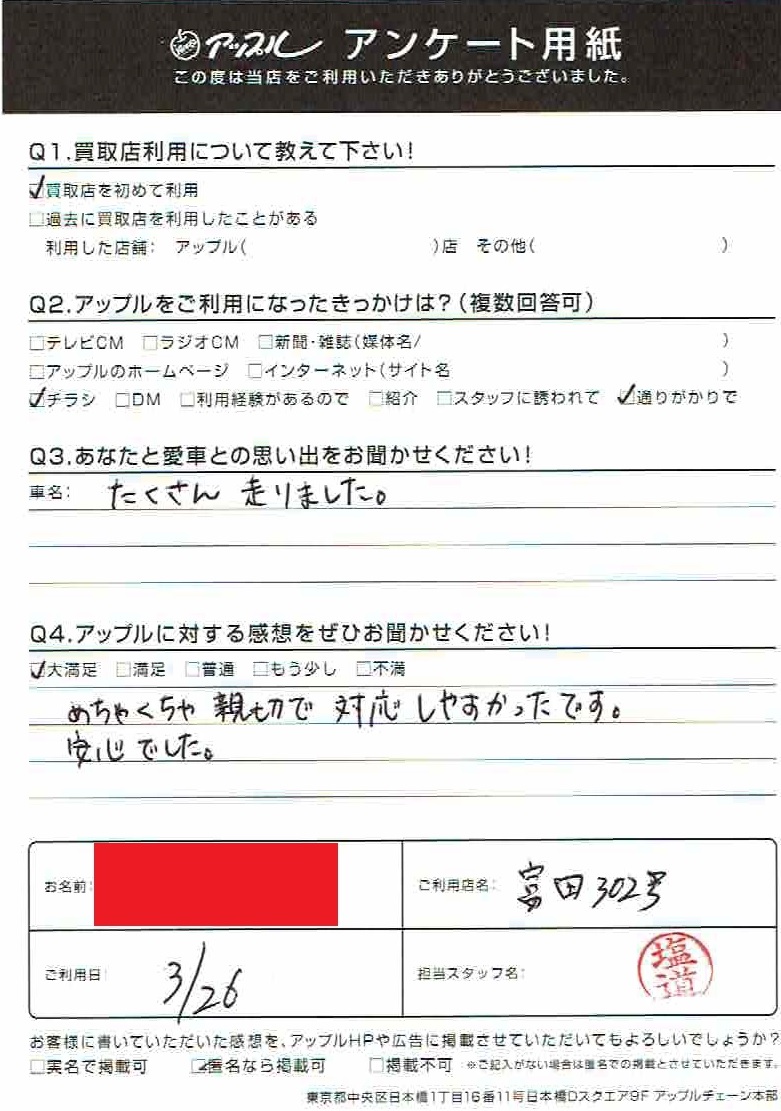 アップル アンケート用紙
この度は当店をご利用いただきありがとうございました。
Q1.買取店利用について教えて下さい!
☑買取店を初めて利用
□過去に買取店を利用したことがある
利用した店舗: アップル( )店 その他( )
Q2.アップルをご利用になったきっかけは?(複数回答可)
□テレビCM □ラジオCM □新聞・雑誌(媒体名/ )
□アップルのホームページ □インターネット(サイト名 )
☑チラシ □DM □利用経験があるので □紹介 □スタッフに誘われて ☑通りがかりで
Q3.あなたと愛車との思い出をお聞かせください!
車名: たくさん 走りました。
Q4.アップルに対する感想をぜひお聞かせください!
☑大満足 □満足 □普通 □もう少し □不満
めちゃくちゃ 親切で 対応 しやすかったです。
安心でした。
お名前:
ご利用店名: 富田302号
ご利用日: 3/26
担当スタッフ名: 塩道
お客様に書いていただいた感想を、アップルHPや広告に掲載させていただいてもよろしいでしょうか?
□実名で掲載可 ☑匿名なら掲載可 □掲載不可 ※ご記入がない場合は匿名での掲載とさせていただきます。
東京都中央区日本橋1丁目16番11号日本橋Dスクエア9F アップルチェーン本部